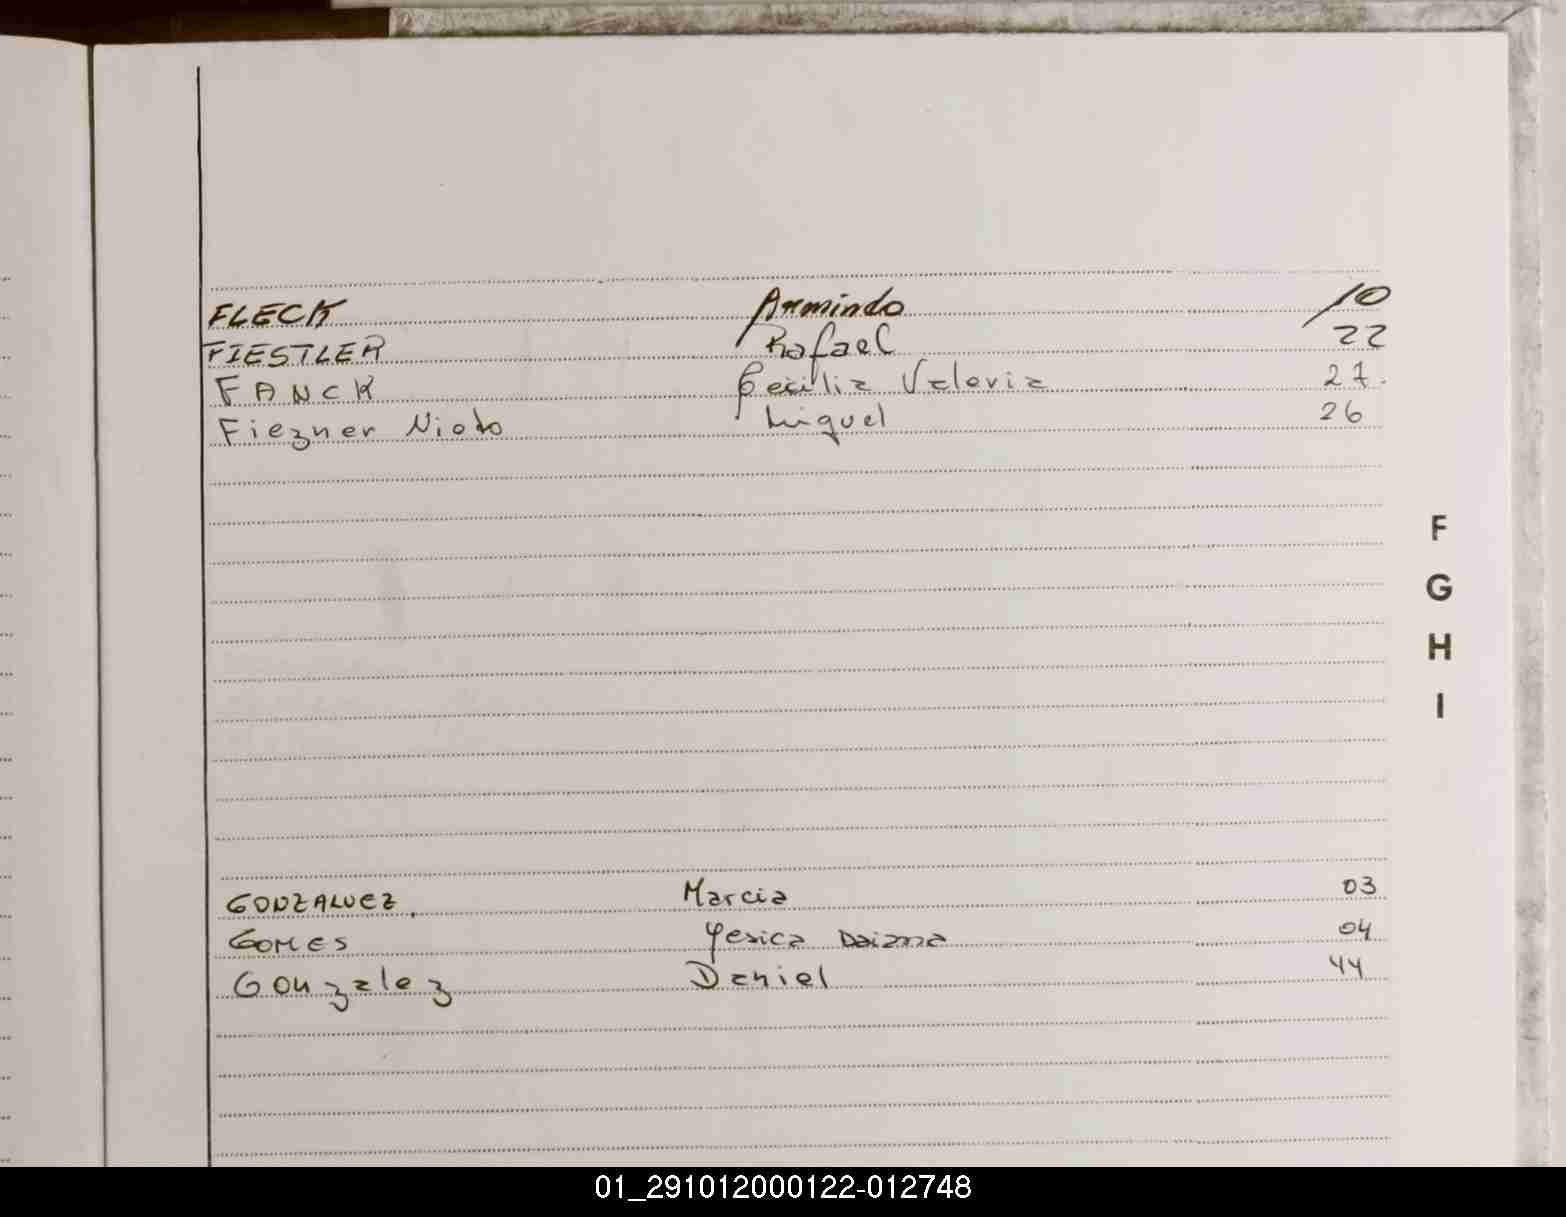 FLECK Armindo 10
FIESTLER Rafael 22
FANCK Cecilia Valeria 27.
Fiezner Nioto Miguel 26
F
G
H
I
GONZALVEZ. Marcia 03
GOMES Yesica Daiana 04
Gonzalez Daniel 44
01_291012000122-012748